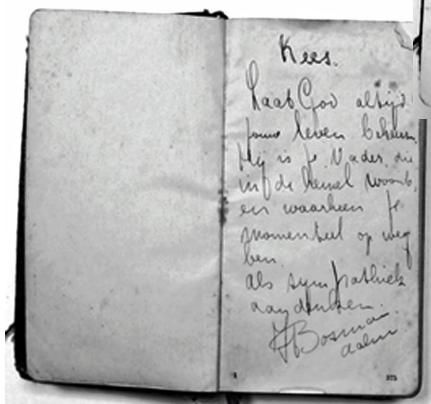 Kees.
Laat God altijd
jouw leven beheersen.
Hij is je Vader, die
in de hemel woont,
en waarheen je
momenteel op weg
ben.
als sympathiek
aandenken.
Bosman
aalm